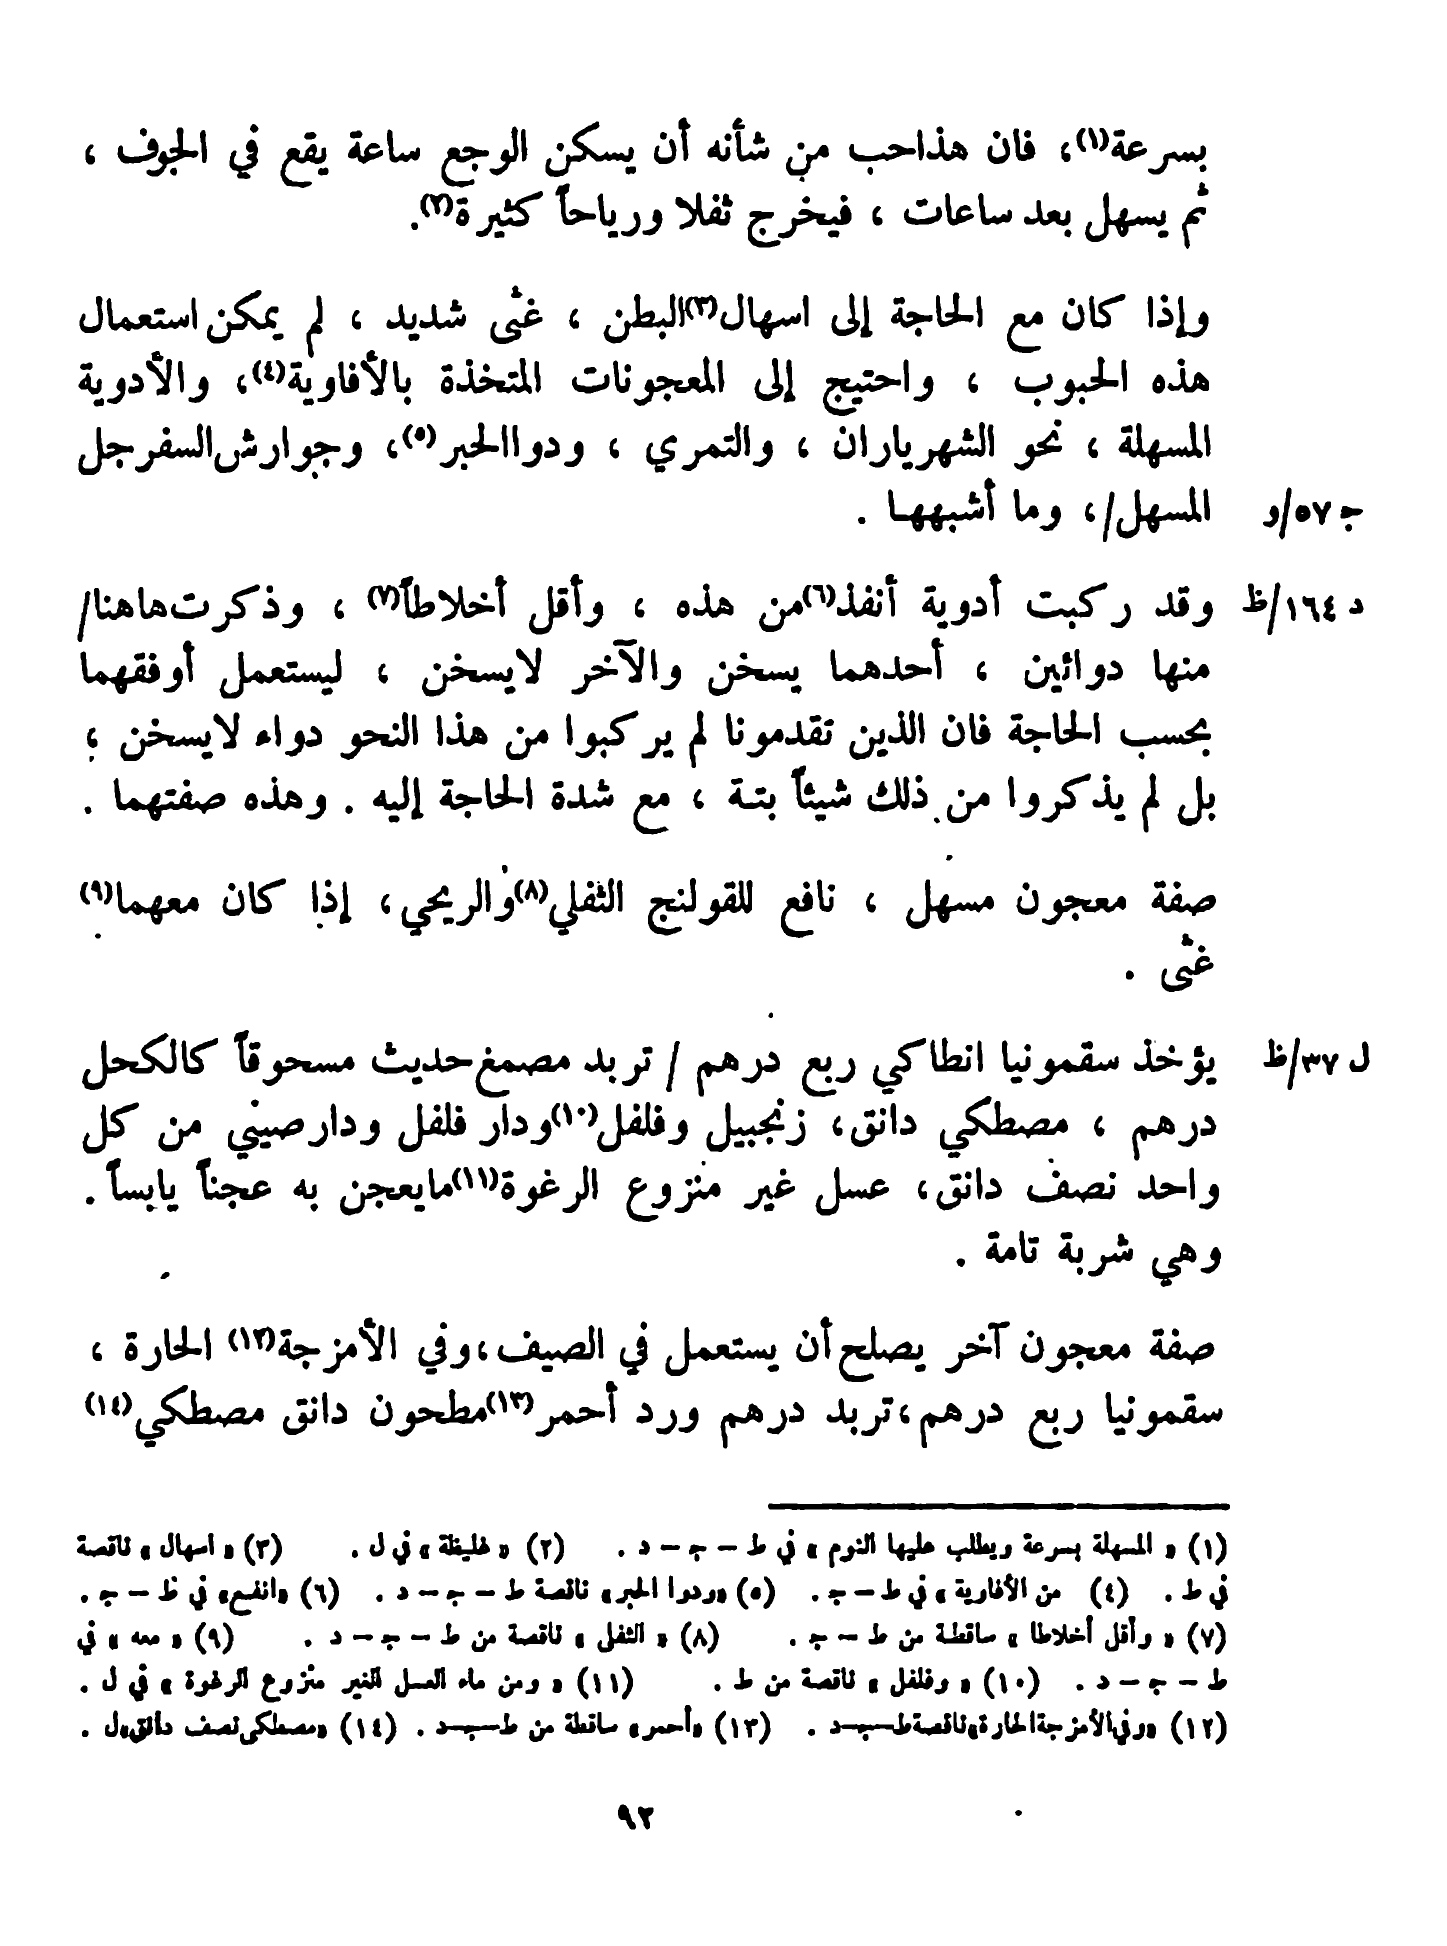 بسرعة(١)، فان هذاحب من شأنه أن يسكن الوجع ساعة يقع في الجوف ،
ثم يسهل بعد ساعات ، فيخرج ثفلا ورياحاً كثيرة(٢).
وإذا كان مع الحاجة إلى اسهال(٣)البطن ، غثى شديد ، لم يمكن استعمال
هذه الحبوب ، واحتيج إلى المعجونات المتخذة بالأفاوية(٤)، والأدوية
المسهلة ، نحو الشهرياران ، والتمري ، ودواالحبر(٥)، وجوارش السفرجل
المسهل/، وما أشبهها . ج ٥٧/و
وقد ركبت أدوية أنفذ(٦)من هذه ، وأقل أخلاطاً(٧) ، وذكرت هاهنا/ د ١٦٤/ظ
منها دوائين ، أحدهما يسخن والآخر لايسخن ، ليستعمل أوفقهما
بحسب الحاجة فان الذين تقدمونا لم يركبوا من هذا النحو دواء لايسخن ؛
بل لم يذكروا من ذلك شيئاً بتة ، مع شدة الحاجة إليه . وهذه صفتهما .
صفة معجون مسهل ، نافع للقولنج الثفلي(٨)والريحي، إذا كان معهما(٩)
غثى .
يؤخذ سقمونيا انطاكي ربع درهم / تربد مصمغ حديث مسحوقاً كالكحل ل ٣٧/ظ
درهم ، مصطكي دانق، زنجبيل وفلفل(١٠)ودار فلفل ودارصيني من كل
واحد نصف دانق، عسل غير منزوع الرغوة(١١)مايعجن به عجناً يابساً .
وهي شربة تامة .
صفة معجون آخر يصلح أن يستعمل في الصيف،وفي الأمزجة(١٢) الحارة ،
سقمونيا ربع درهم،تربد درهم ورد أحمر(١٣)مطحون دانق مصطكي(١٤)
(١) « المسهلة بسرعة ويطلب عليها النوم » في ط – ج – د . (٢) « غليظة » في ل . (٣) « اسهال » ناقصة
في ط . (٤) من الأفاوية » في ط – ج . (٥) «ودوا الحبر» ناقصة ط – ج – د . (٦) «انفع» في ظ – ج .
(٧) « وأقل أخلاطا » ساقطة من ط – ج . (٨) « الثفلى » ناقصة من ط – ج – د . (٩) « معه » في
ط – ج – د . (١٠) « وفلفل » ناقصة من ط . (١١) « ومن ماء العسل الغير منزوع الرغوة » في ل .
(١٢) «وفي الأمزجة الحارة»ناقصة ط–ج–د . (١٣) «أحمر» ساقطة من ط–ج–د . (١٤) «مصطكى نصف دانق»ل .
٩٢